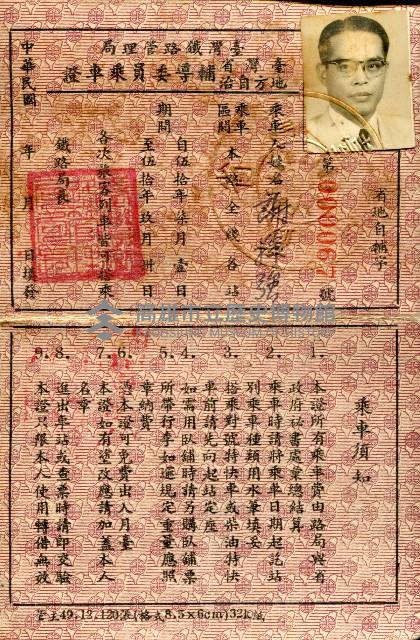 臺灣鐵路管理局
臺灣省地方自治輔導委員乘車證
省地自輔字
第000067號
乘車人姓名 謝輝強
乘車區間 本路全線各站
期間 自伍拾年柒月壹日
至伍拾年玖月卅日
各次旅客列車皆可搭乘
鐵路局長
中華民國 年 月 日填發
高雄市立歷史博物館
乘車須知
1. 本證所有乘車費由路局與省政府秘書處彙總結算
2. 乘車時請將乘車日期起訖站別乘車種類用水筆填妥
3. 搭乘對號特快車或柴油特快車前請先向起站定座
4. 如需用臥鋪時請另購臥鋪票
5. 所帶行李如逾規定重量應照章納費
6. 憑本證可免費出入月臺
7. 本證如有塗改應請加蓋本人名章
8. 進出車站或查票時請即交驗
9. 本證只限本人使用轉借無效
管主49.12.120張(格式8.5x6cm)32K紙